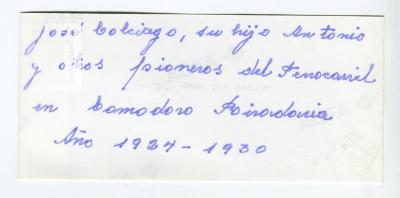 José Colcirgo, su hijo Antonio
y otros pioneros del Ferrocarril
en Comodoro Rivadavia
Año 1927 - 1930